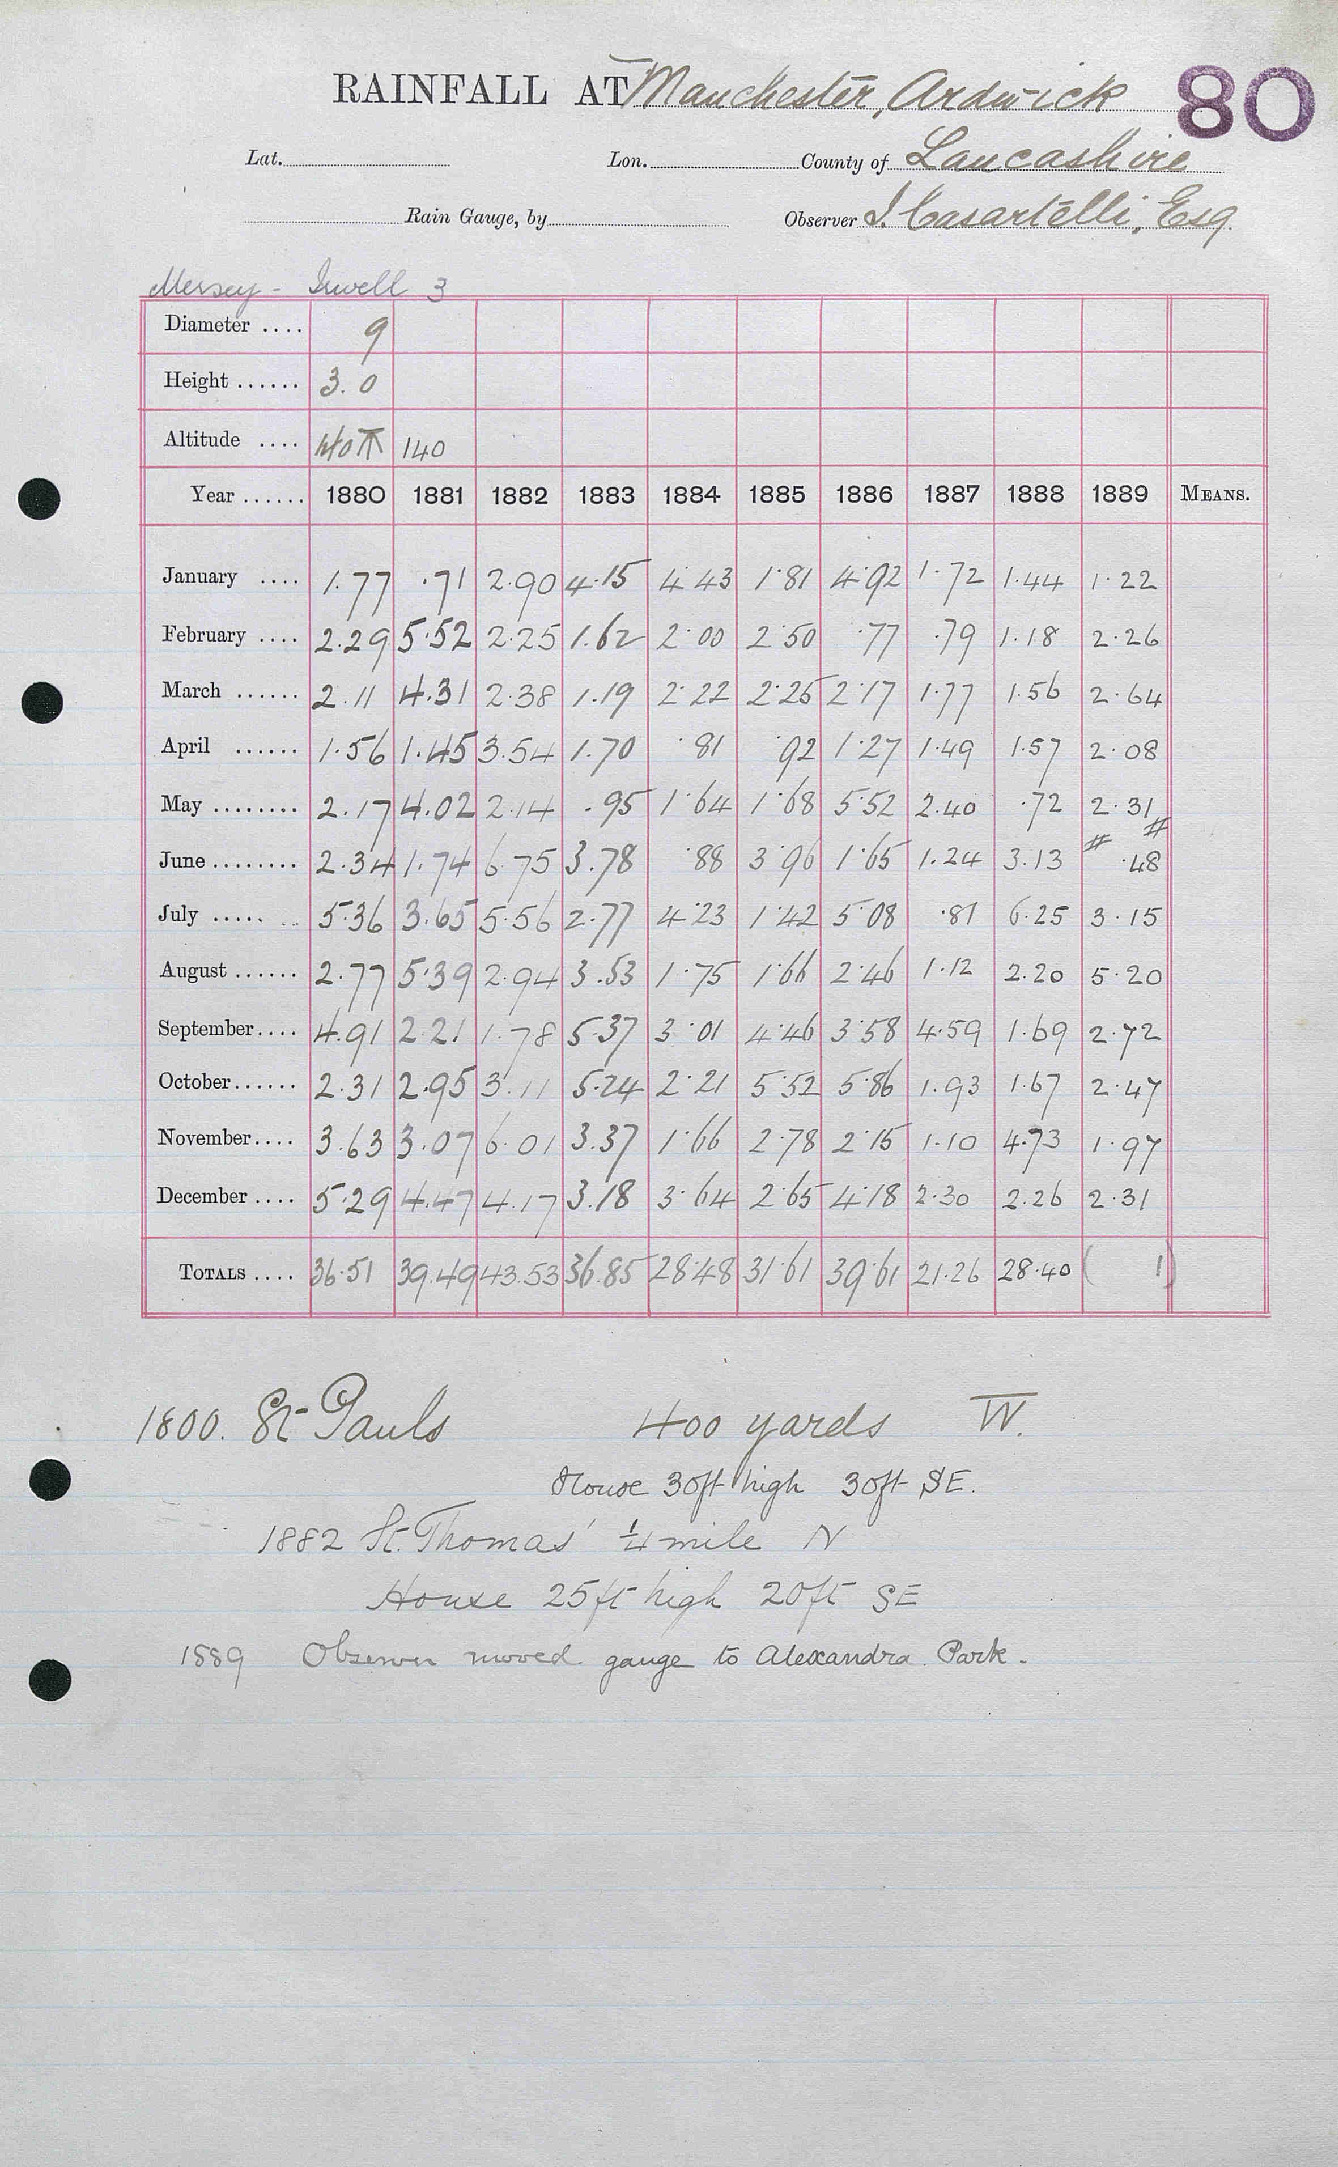 RAINFALL AT Manchester, Ardwick 80
Lat. Lon. County of Lancashire
Rain Gauge, by Observer J. Casartelli, Esq.
Mersey - Irwell 3
Diameter .... 9
Height ...... 3.0
Altitude .... 140 T 140
Year ...... 1880 1881 1882 1883 1884 1885 1886 1887 1888 1889 MEANS.
January .... 1.77 .71 2.90 4.15 4.43 1.81 4.92 1.72 1.44 1.22
February .... 2.29 5.52 2.25 1.62 2.00 2.50 .77 .79 1.18 2.26
March ...... 2.11 4.31 2.38 1.19 2.22 2.25 2.17 1.77 1.56 2.64
April ...... 1.56 1.45 3.54 1.70 .81 .92 1.27 1.49 1.57 2.08
May ........ 2.17 4.02 2.14 .95 1.64 1.68 5.52 2.40 .72 2.31
June ........ 2.34 1.74 6.75 3.78 .88 3.96 1.65 1.24 3.13 # .48 #
July ..... 5.36 3.65 5.56 2.77 4.23 1.42 5.08 .81 6.25 3.15
August ...... 2.77 5.39 2.94 3.53 1.75 1.66 2.46 1.12 2.20 5.20
September .... 4.91 2.21 1.78 5.37 3.01 4.46 3.58 4.59 1.69 2.72
October ...... 2.31 2.95 3.11 5.24 2.21 5.52 5.86 1.93 1.67 2.47
November .... 3.63 3.07 6.01 3.37 1.66 2.78 2.15 1.10 4.73 1.97
December .... 5.29 4.47 4.17 3.18 3.64 2.65 4.18 2.30 2.26 2.31
TOTALS .... 36.51 39.49 43.53 36.85 28.48 31.61 39.61 21.26 28.40 ( 1)
1800. St Pauls 400 yards W.
House 30ft high 30ft SE.
1882 St. Thomas' 1/4 mile N
House 25ft high 20ft SE
1889 Observer moved gauge to Alexandra Park.